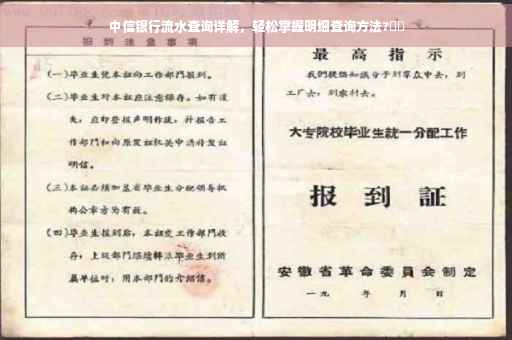 中信银行流水查询详解，轻松掌握明细查询方法?
报到注意事项
(一)毕业生凭本证向工作部门报到。
(二)毕业生对本证应注意保存。如有遗
失，应即登报声明作废，并报告工
作部门和向原发证机关申请补发证
明信。
(三)本证必须加盖省毕业生分配领导机
构公章方为有效。
(四)毕业生报到后，本证交工作部门收
存；上级部门继续转派毕业生到所
属单位时，用本部门的介绍信。
最高指示
我们提倡知识分子到群众中去，到
工厂去，到农村去。
大专院校毕业生統一分配工作
报到証
安徽省革命委員会制定
一九 年 月 日